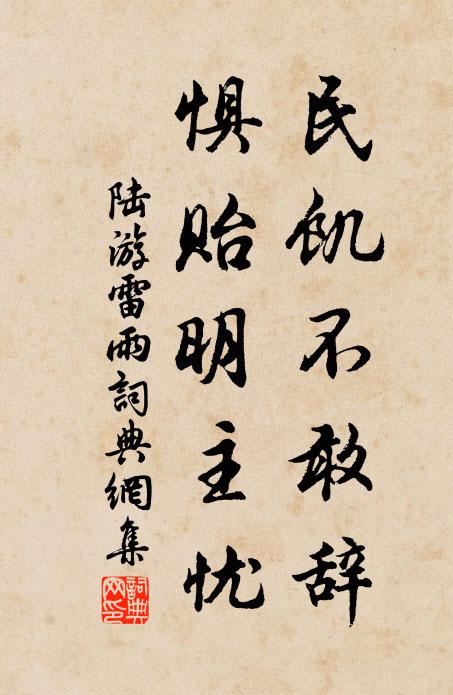 民饥不敢辞
惧贻明主忧
陆游雷雨詞典網集
詞典网印